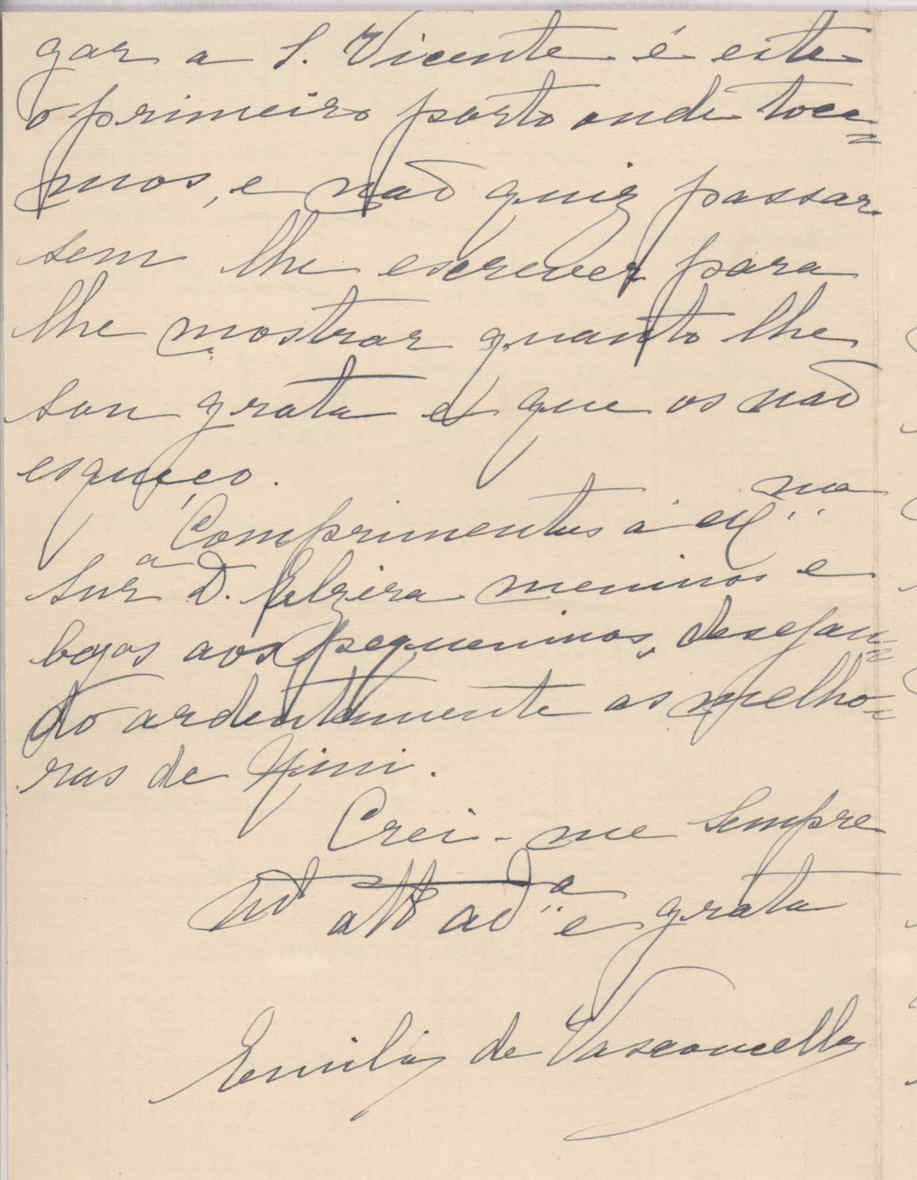 gar a S. Vicente é este
o primeiro porto onde toca=
mos, e não quiz passar
sem lhe escrever para
lhe mostrar quanto lhe
sou grata e que os não
esqueço.
Comprimentos á Exma
Snrª D. Elzira meninos e
bejos aos pequeninos, desejan=
do ardentemente as melho=
ras de Nini.
Crei-me sempre
attª adª e grata
Emilia de Vasconcellos